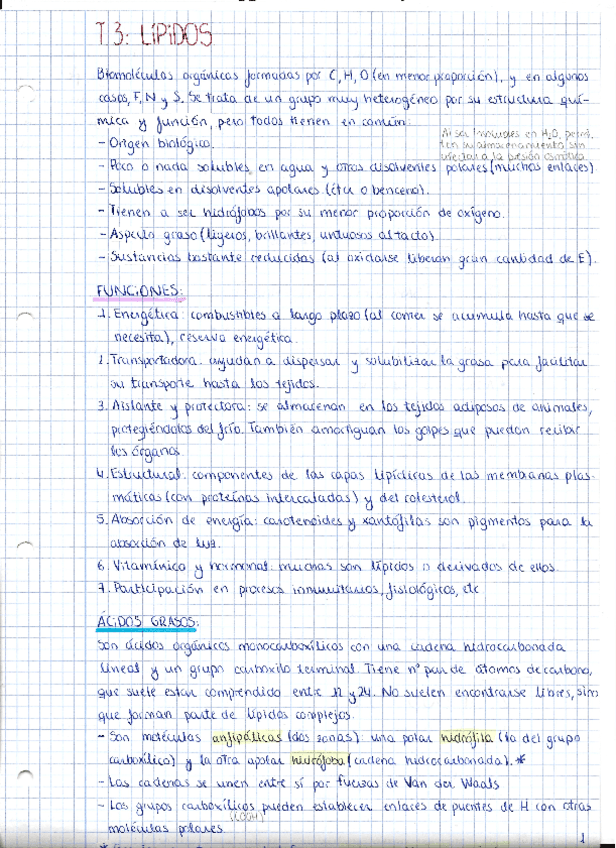 T.3: LÍPIDOS
Biomoléculas orgánicas formadas por C, H, O (en menor proporción), y en algunos
casos, F, N y S. Se trata de un grupo muy heterogéneo por su estructura quí-
mica y función, pero todos tienen en común:
- Origen biológico.
Al ser insolubles en H₂O, permi-
ten su almacenamiento sin
afectar a la presión osmótica.
- Poco o nada solubles, en agua y otros disolventes polares (muchos enlaces)
- Solubles en disolventes apolares (éter o benceno).
- Tienen a ser hidrófobos por su menor proporción de oxígeno.
- Aspecto graso (ligeros, brillantes, untuosos al tacto).
- Sustancias bastante reducidas (al oxidarse liberan gran cantidad de E).
FUNCIONES:
1. Energética: combustibles a largo plazo (al comer se acumula hasta que se
necesita), reserva energética.
2. Transportadora: ayudan a dispersar y solubilizar la grasa para facilitar
su transporte hasta los tejidos.
3. Aislante y protectora: se almacenan en los tejidos adiposos de animales,
protegiéndolos del frío. También amortiguan los golpes que puedan recibir
los órganos.
4. Estructural: componentes de las capas lipídicas de las membranas plas-
máticas (con proteínas intercaladas) y del colesterol.
5. Absorción de energía: carotenoides y xantófilas son pigmentos para la
absorción de luz.
6. Vitamínico y hormonal: muchas son lípidos o derivados de ellos.
7. Participación en procesos inmunitarios, fisiológicos, etc
ÁCIDOS GRASOS:
Son ácidos orgánicos monocarboxílicos con una cadena hidrocarbonada
lineal y un grupo carboxilo terminal. Tiene nº par de átomos de carbono,
que suele estar comprendido entre 12 y 24. No suelen encontrarse libres, sino
que forman parte de lípidos complejos.
- Son moléculas anfipálicas (dos zonas): una polar hidrófila (la del grupo
carboxílico) y la otra apolar hidrófoba (cadena hidrocarbonada). *
- Las cadenas se unen entre sí por fuerzas de Van der Waals
- Los grupos carboxílicos pueden establecer enlaces de puentes de H con otras
(COOH)
moléculas polares.
1